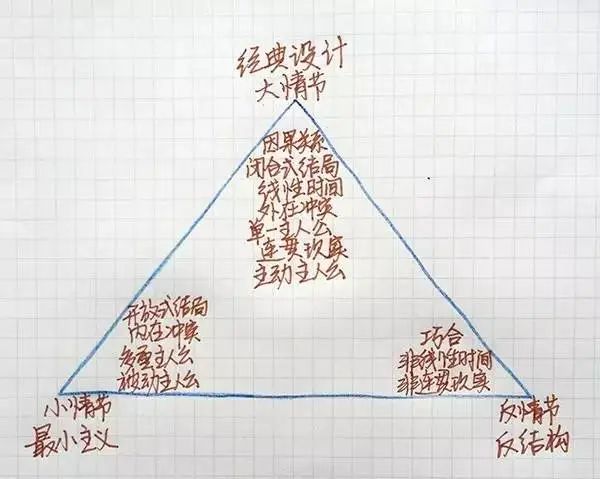 经典设计
大情节
因果关系
闭合式结局
线性时间
外在冲突
单一主人公
连贯现实
主动主人公
开放式结局
内在冲突
多重主人公
被动主人公
巧合
非线性时间
非连贯现实
小情节
最小主义
反情节
反结构